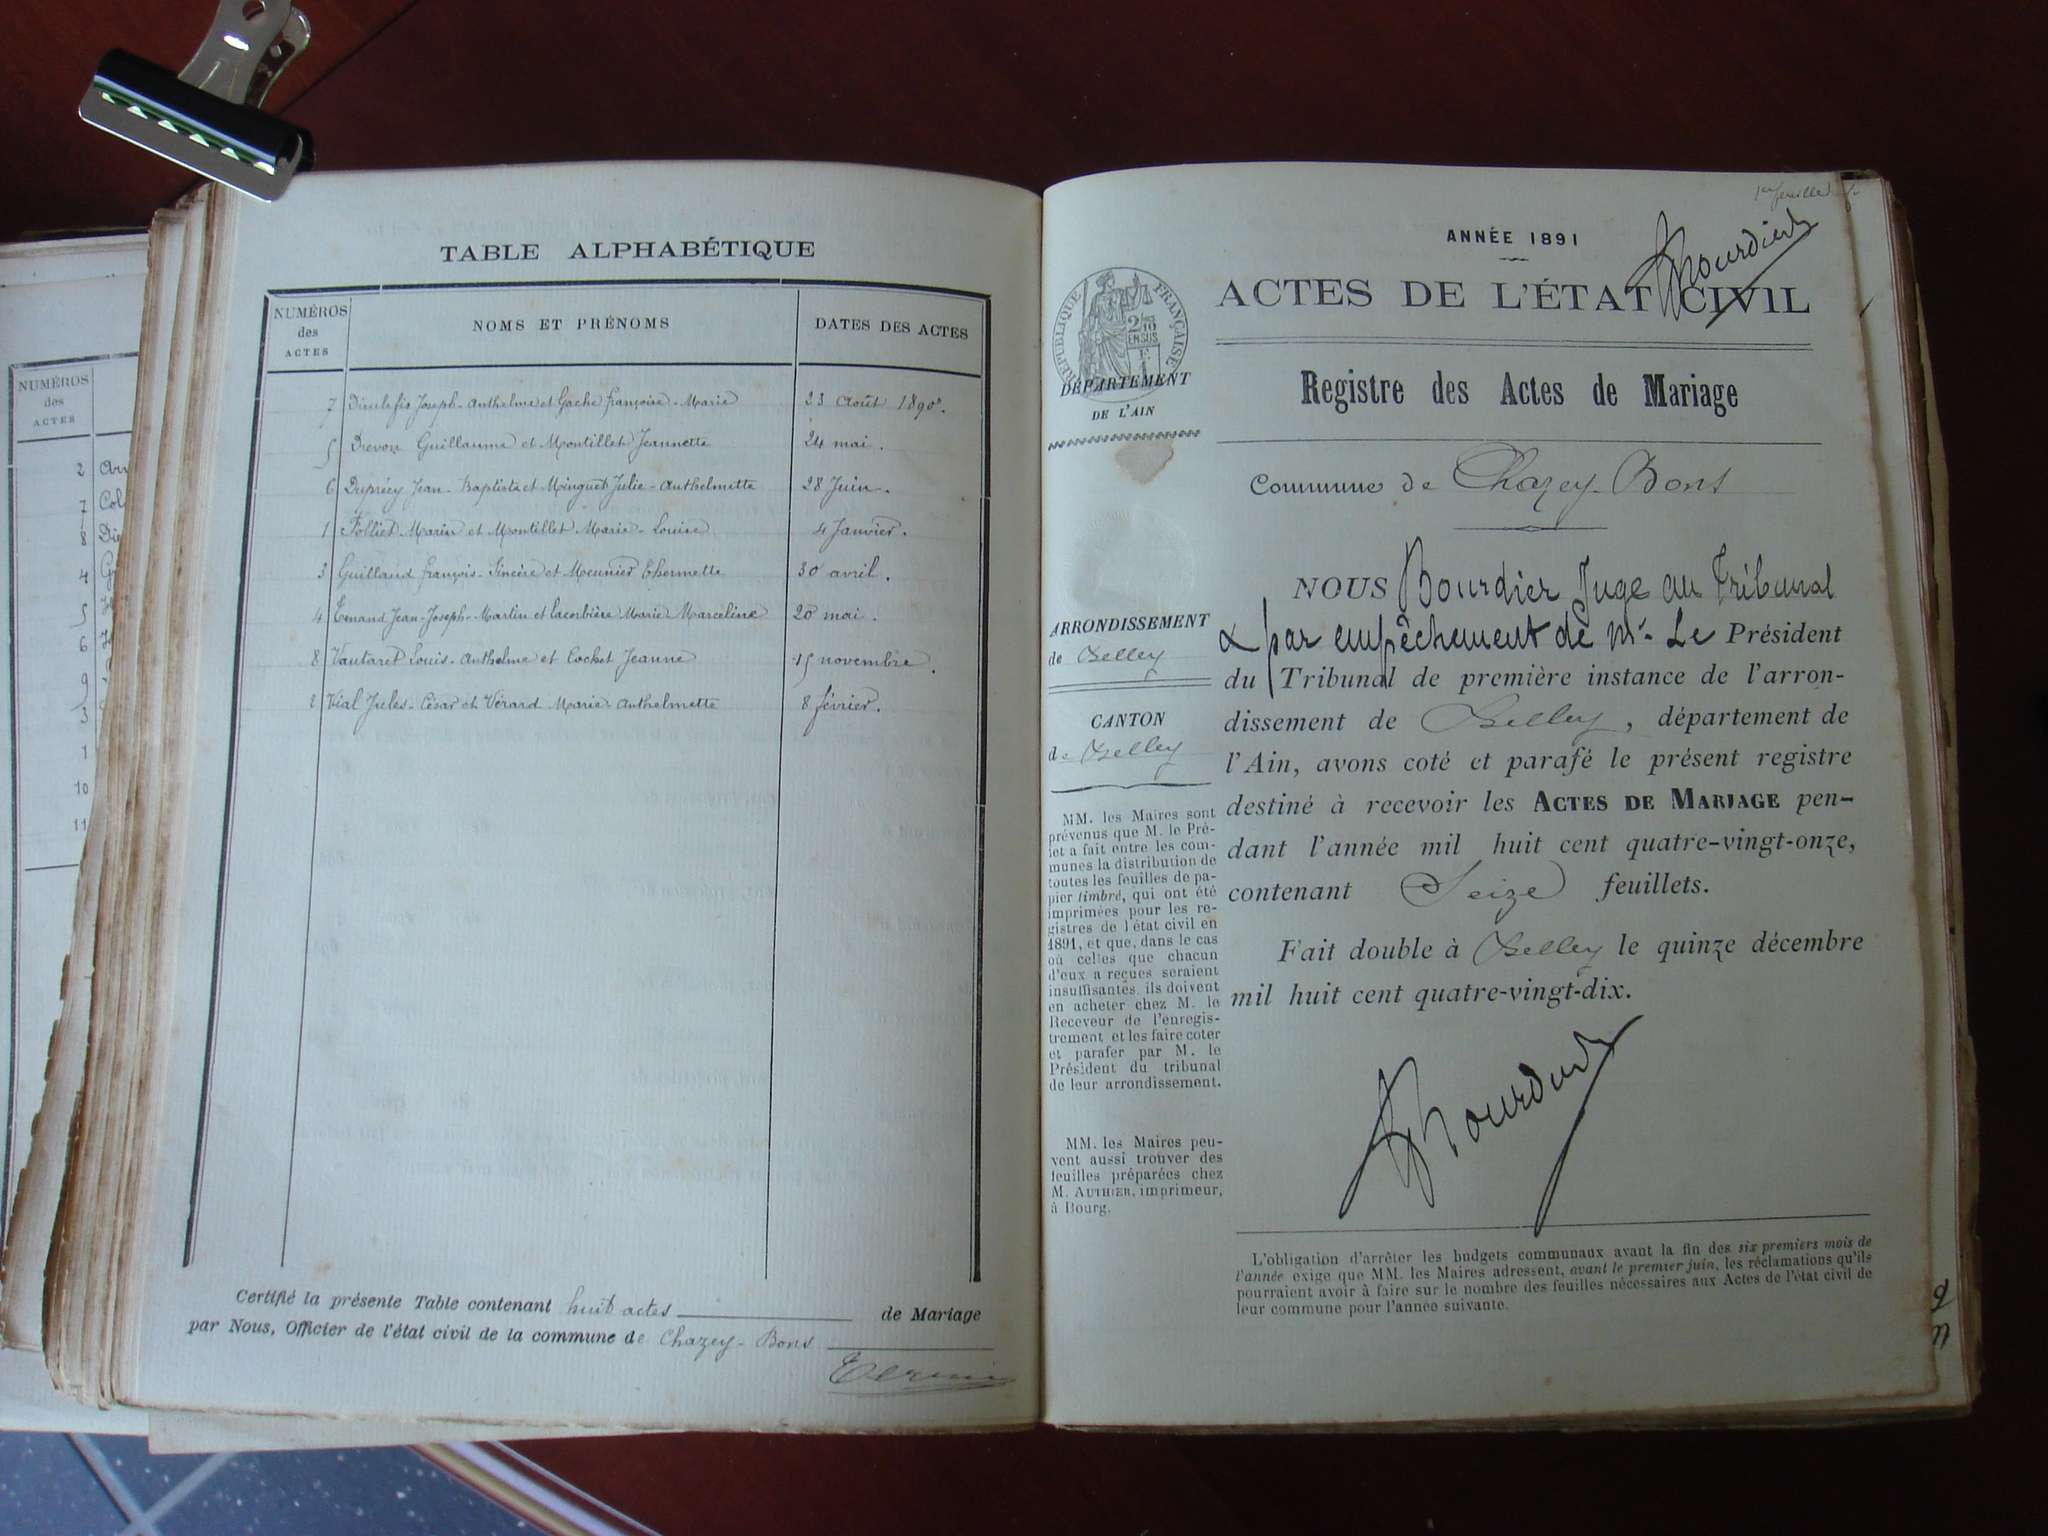 NUMÉROS
des
ACTES
2
7 Col
8 Die
4
5
6
9
3
1
10
11
TABLE ALPHABÉTIQUE
NUMÉROS des ACTES NOMS ET PRÉNOMS DATES DES ACTES
7 Dieulefis Joseph-Anthelme et Gache Françoise-Marie 23 Août 1890.
5 Drevon Guillaume et Montillet Jeannette 24 mai.
6 Duprécy Jean-Baptiste et Minguet Julie-Anthelmette 28 Juin.
1 Folliet Marin et Montillet Marie-Louise 4 Janvier.
3 Guillaud François-Sincère et Meunier Thermette 30 avril.
4 Tenand Jean-Joseph-Martin et Lacorbière Marie Marceline 20 mai.
8 Vautaret Louis-Anthelme et Cochet Jeanne 15 novembre.
2 Vial Jules-César et Vérard Marie-Anthelmette 8 février.
Certifié la présente Table contenant huit actes de Mariage
par Nous, Officier de l'état civil de la commune de Chazey-Bons
1re feuille
Bourdier
ANNÉE 1891
ACTES DE L'ÉTAT CIVIL
RÉPUBLIQUE FRANÇAISE
2/10
EN SUS
DÉPARTEMENT
DE L'AIN
Registre des Actes de Mariage
Commune de Chazey-Bons
ARRONDISSEMENT
de Belley
CANTON
de Belley
MM. les Maires sont
prévenus que M. le Pré-
fet a fait entre les com-
munes la distribution de
toutes les feuilles de pa-
pier timbré, qui ont été
imprimées pour les re-
gistres de l'état civil en
1891, et que, dans le cas
où celles que chacun
d'eux a reçues seraient
insuffisantes, ils doivent
en acheter chez M. le
Receveur de l'enregis-
trement et les faire coter
et parafer par M. le
Président du tribunal
de leur arrondissement.
MM. les Maires peu-
vent aussi trouver des
feuilles préparées chez
M. AUTHIER, imprimeur,
à Bourg.
NOUS Bourdier Juge au Tribunal
& par empêchement de Mr. Le Président
du Tribunal de première instance de l'arron-
dissement de Belley, département de
l'Ain, avons coté et parafé le présent registre
destiné à recevoir les ACTES DE MARIAGE pen-
dant l'année mil huit cent quatre-vingt-onze,
contenant Seize feuillets.
Fait double à Belley le quinze décembre
mil huit cent quatre-vingt-dix.
Bourdier
L'obligation d'arrêter les budgets communaux avant la fin des six premiers mois de
l'année exige que MM. les Maires adressent, avant le premier juin, les réclamations qu'ils
pourraient avoir à faire sur le nombre des feuilles nécessaires aux Actes de l'état civil de
leur commune pour l'année suivante.